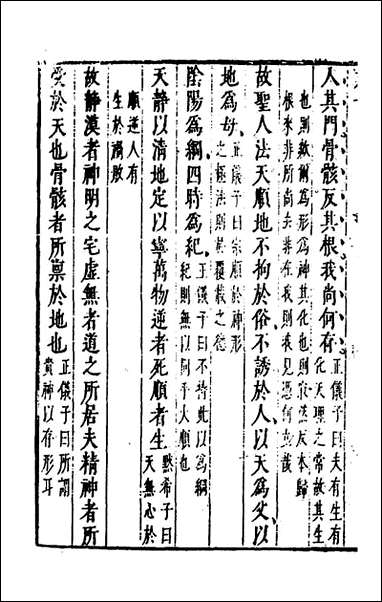 入其門骨骸反其根我尚何存正儀子曰夫有生有化天理之常故其生
也則歘爾爲形爲神其化也則寂然反本歸根來非所尚去非在我則我見憑何立哉
故聖人法天順地不拘於俗不誘於人以天爲父以
地爲母正儀子曰宗順於神形之極法則於覆載之德
陰陽爲綱四時爲紀正儀子曰不持此以爲綱紀則無以同乎大順也
天靜以清地定以寧萬物逆者死順者生默希子曰天無心於
順逆人有生於禍敗
故靜漠者神明之宅虛無者道之所居夫精神者所
受於天也骨骸者所稟於地也正儀子曰所謂貴神以存形耳